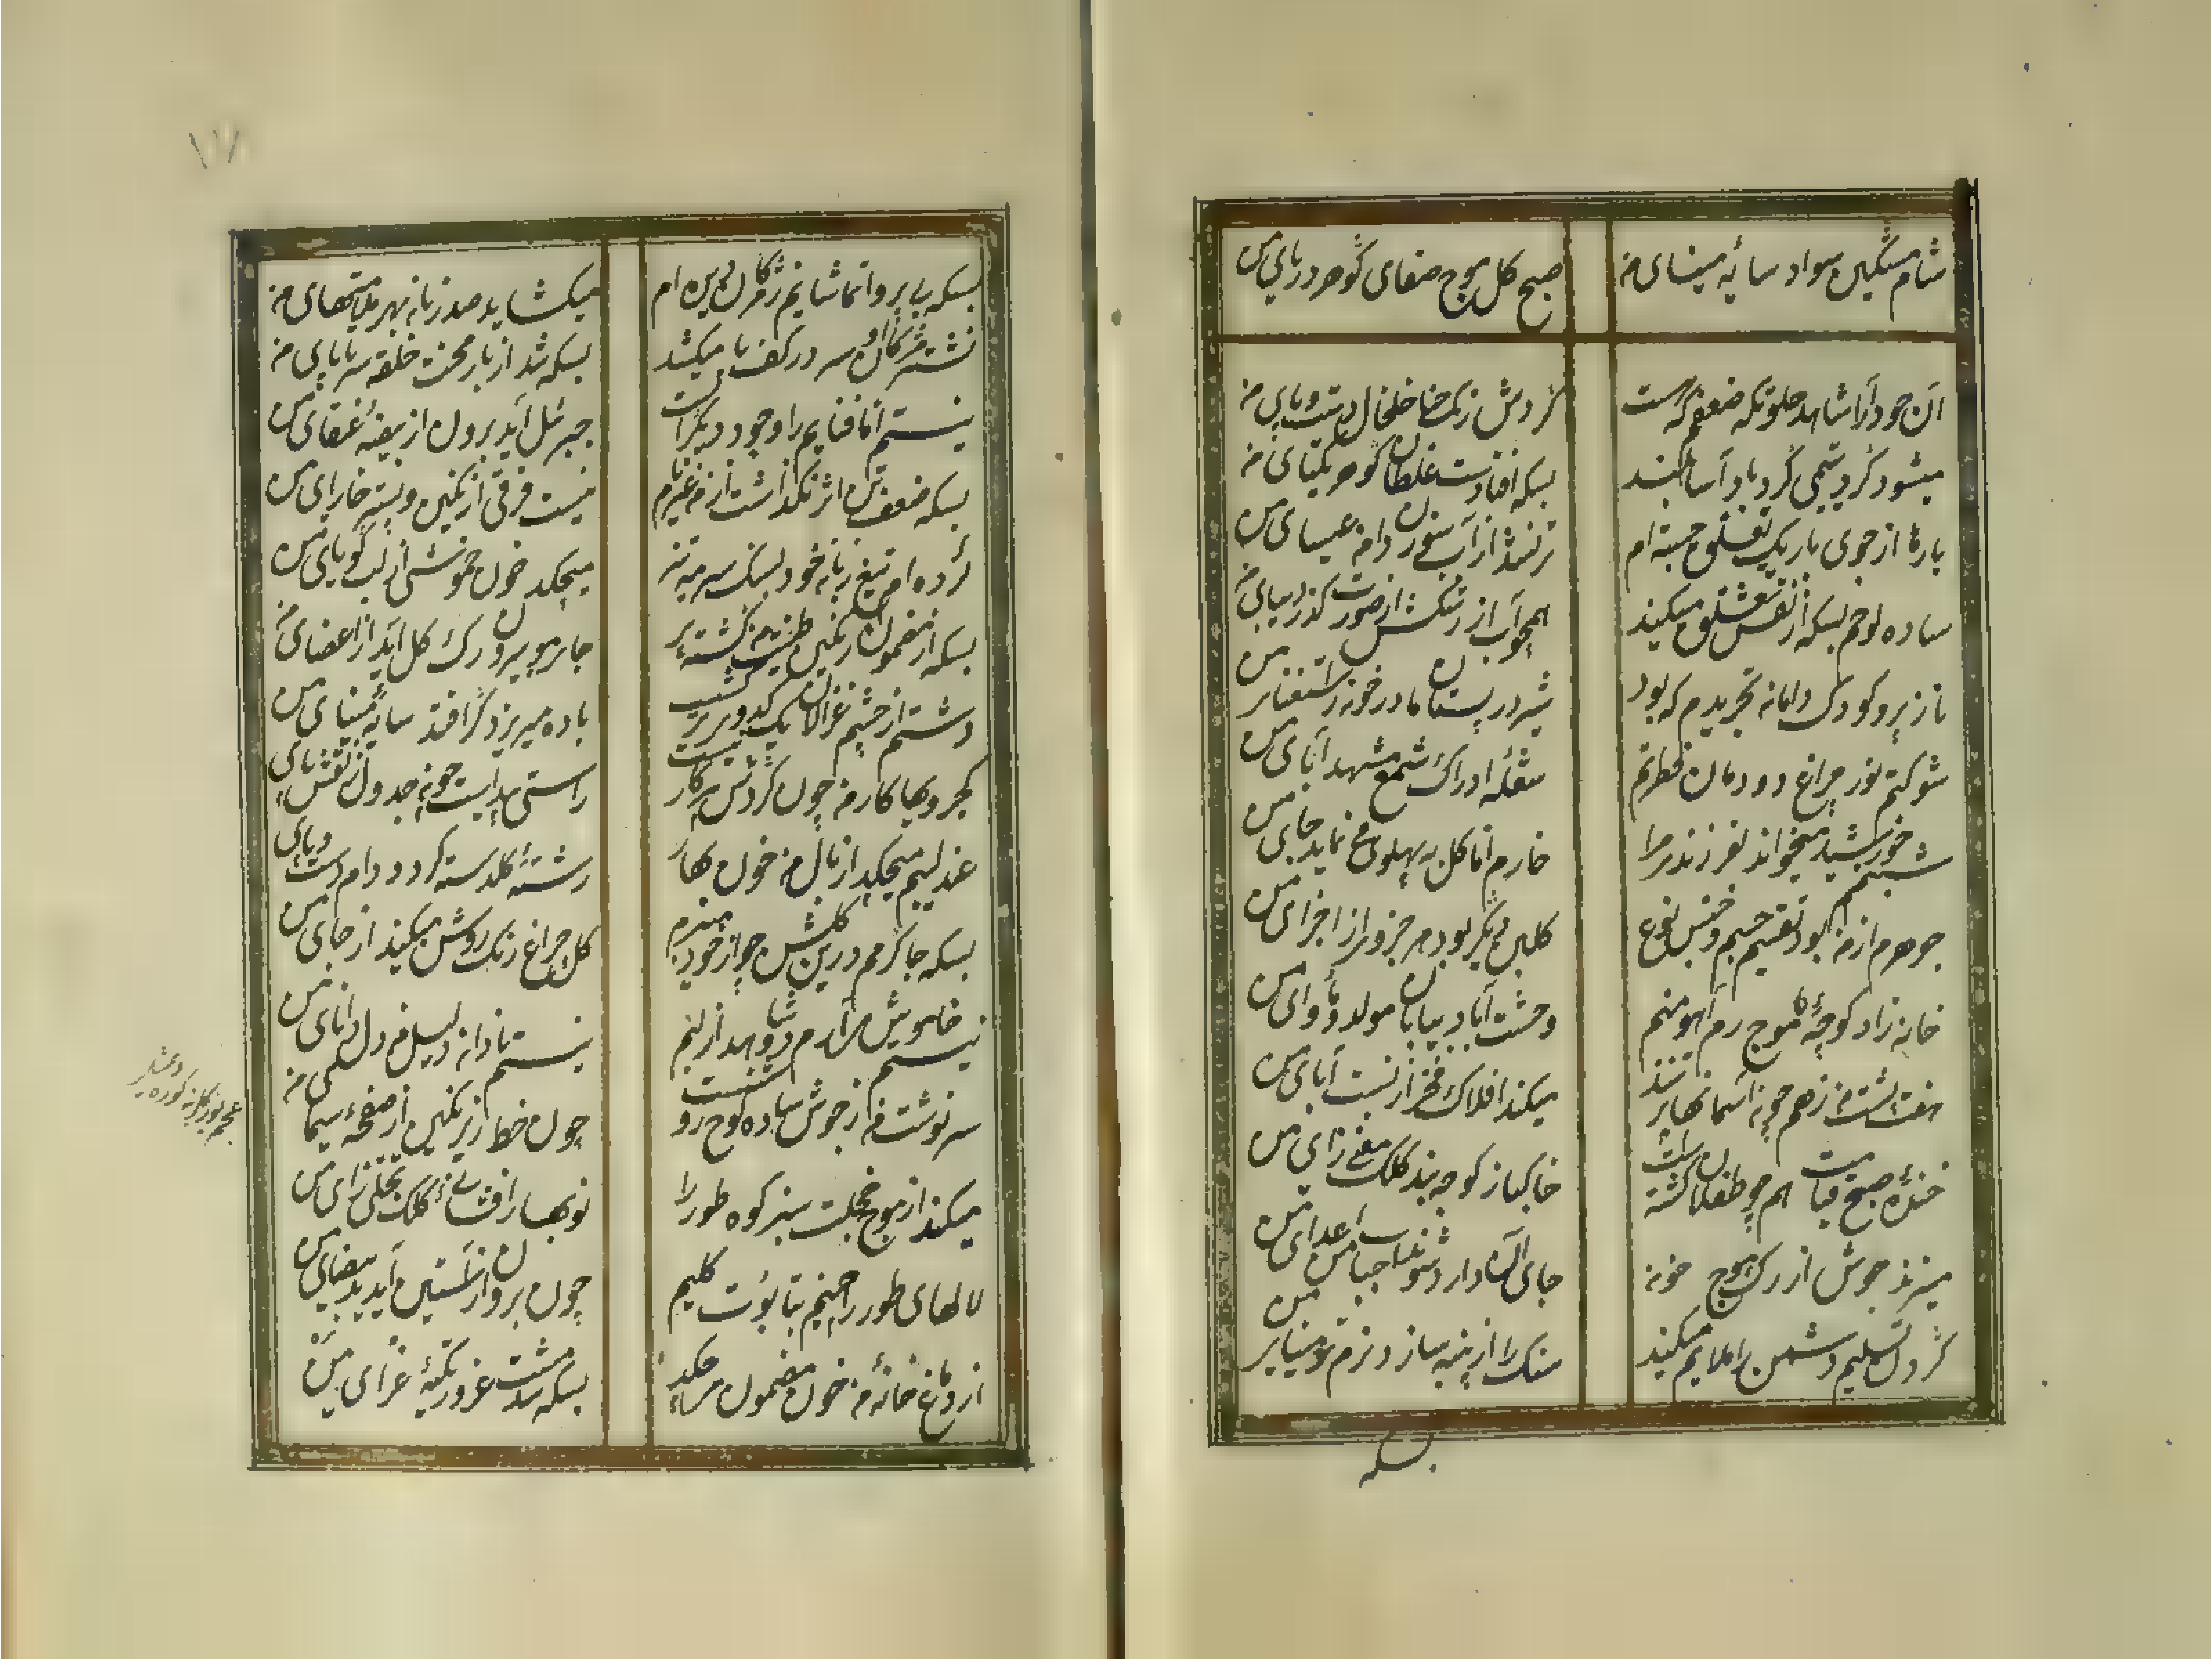 شام مشکین سواد سایه مینای من
صبح کل موج صفای کوهر دریای من
آن خود آرا شاهد جلوتکه ضعفم که هست
کردش رنک حنا خلخال دست و پای من
میشود کرد یتیمی کرد باد آسا بلند
بسکه افتادست غلطان کوهر یکتای من
بارها از جوی باریک تعلق جسته ام
تر نشد از آب سوزن دامن عیسای من
ساده لوحم بسکه از نقش تعلق میکند
همچو آب از رنکش از صورت کذر دیبای من
ناز پرور کودک دامان تجریدم که بود
شیر در پستان مادر خون استغنای من
شوکتم نور چراغ دودمان فطرتم
شعله ادراک شمع مشهد آبای من
شبنمم خورشید میخواند بفرزندی مرا
خارم اما کل به پهلوی نماید جای من
جوهرم از من بود تقسیم جسم و جنس نوع
کلبن دیکر بود هر جزوی از اجزای من
خانه زاد کوچهای موج رم آهو منم
وحشت آباد بیابان مولد و مأوای من
هفت پشت من ز هم چون آسمانها برترند
میکند افلاک فخر از نسبت آبای من
خنده صبح قیامت هم چو طفلان کشته است
خاکباز کوچه بند کلک معنی زای من
میزند جوش از رک موج خون
جای آن دارد شود احباب من اعدای من
کر دل تسلیم دشمن را ملایم میکند
سنک را از پنبه سازد نرم تر مینای من
بسکه
بسکه بی پروا تماشایم ز مژکان دیده ام
میکشاید صد زبان بهر ملامتهای من
نشتر مژکان سر در کف پا میکشد
بسکه شد از بار محنت حلقه سر تا پای من
نیستم اما فنایم را وجود دیکر است
جبرئیل آید برون از بیضه عنقای من
بسکه ضعف تن اثر نکذاشت از من غیر نام
نیست فرقی از نکین و بستر خارای من
کرده ام تیغ زبان خود بسنک سرمه تیز
میچکد خون خموشی از لب کویای من
بسکه از مضمون رنکین طینتم کشته پر
جای مو بیرون رک کل آید از اعضای من
وحشتم از چشم غزالان یک کدو
باده میریزد کر افتد سایه مینای من
کجرویها کار من چون کردش پرکار نیست
راستی پیداست چون جدول ز نقش پای من
عندلیبم میچکد از بال من خون بهار
رشته کلدسته کردد دام دست و پای من
بسکه جا کرمم درین کلشن چو از خود میروم
کل چراغ رنک روشن میکند از جای من
خامشی دارم دو شاهد از لبم نیستم
نیستم نادان دلیل من دل دانای من
سرنوشت من ز جوش ساده لوحی روشنست
چون خط از زیر نکین از صفحه سیمای من
میکند از موج خجلت سبز کوه طور را
نوبهار افشانی کلک تجلی زای من
لالهای طور را چینم بتابوت کلیم
چون برون از آستین آید ید بیضای من
از دماغ خامه من خون مضمون میچکد
بسکه شد مشت غرور تکیه غرای من